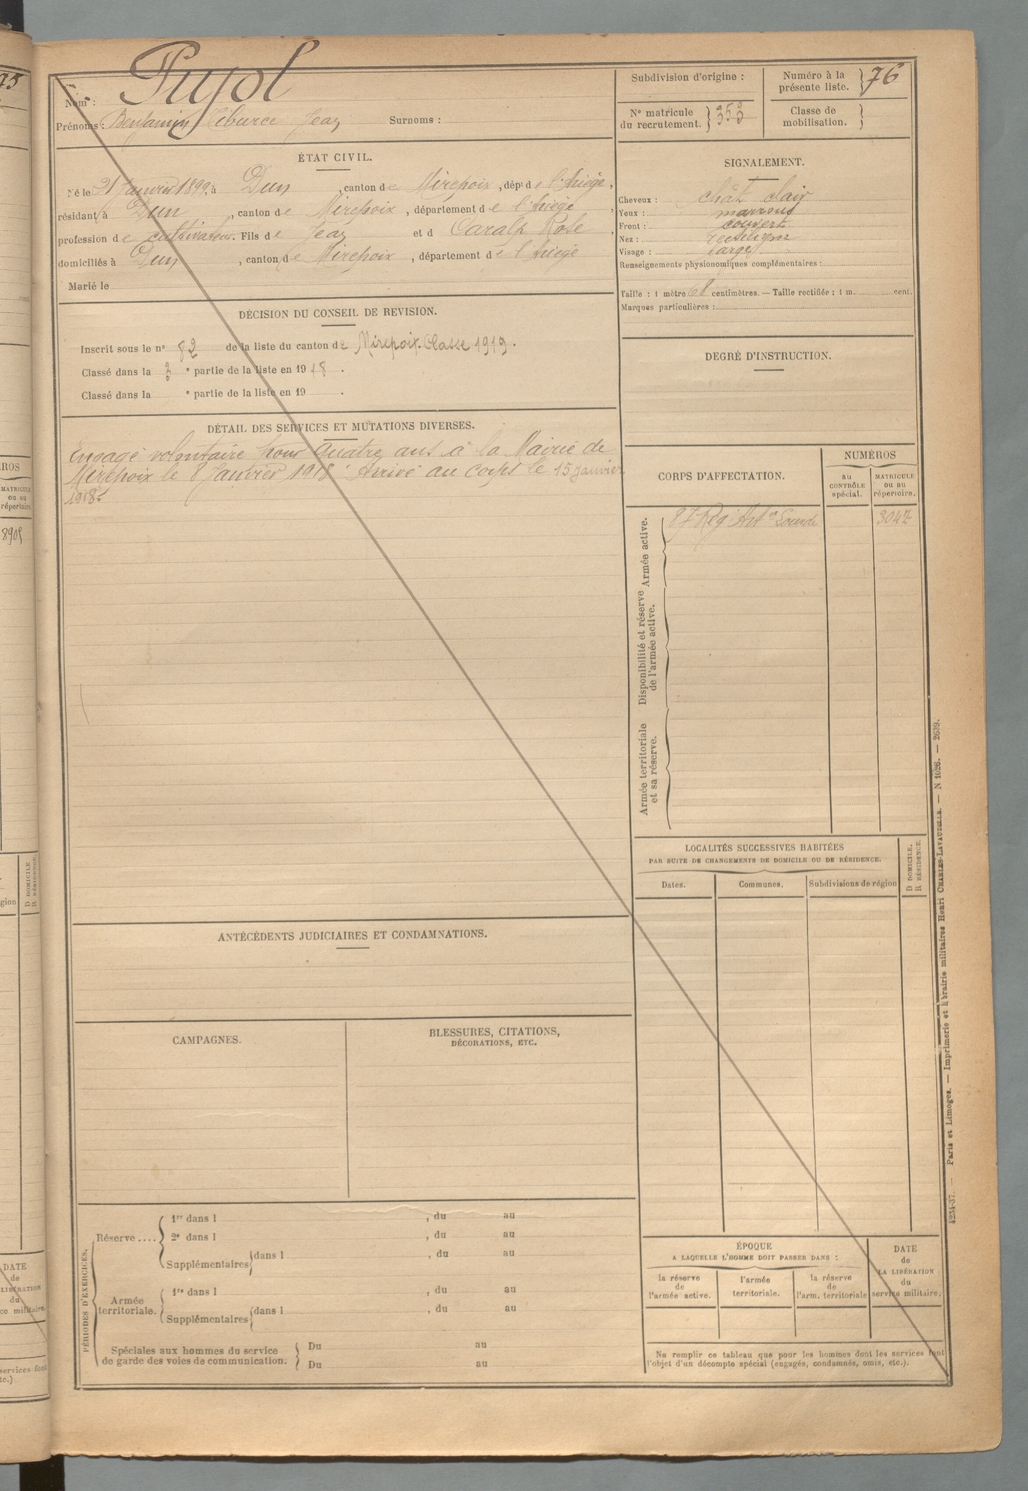 Nom : Pujol
Prénoms : Benjamin Tiburce Jean Surnoms :
Subdivision d'origine :
Numéro à la présente liste. 76
N° matricule du recrutement. 353
Classe de mobilisation.
ÉTAT CIVIL.
Né le 21 Janvier 1899, à Dun, canton de Mirepoix, dépt de l'Ariège,
résidant à Dun, canton de Mirepoix, département de l'Ariège,
profession de cultivateur. Fils de Jean et d Caralp Rose,
domiciliés à Dun, canton de Mirepoix, département de l'Ariège
Marié le
SIGNALEMENT.
Cheveux : chât clair
Yeux : marrons
Front : couvert
Nez : rectiligne
Visage : large
Renseignements physionomiques complémentaires :
Taille : 1 mètre 68 centimètres. — Taille rectifiée : 1 m. cent.
Marques particulières :
DÉCISION DU CONSEIL DE REVISION.
Inscrit sous le n° 82 de la liste du canton de Mirepoix. Classe 1919.
Classé dans la 3 e partie de la liste en 1918.
Classé dans la e partie de la liste en 19 .
DEGRÉ D'INSTRUCTION.
DÉTAIL DES SERVICES ET MUTATIONS DIVERSES.
Engagé volontaire pour quatre ans à la Mairie de
Mirepoix le 8 Janvier 1918. Arrivé au corps le 15 janvier
1918.
CORPS D'AFFECTATION.
NUMÉROS
AU CONTRÔLE spécial.
MATRICULE ou au répertoire.
Armée active.
87 Rég Art ie Lourde 3047
Disponibilité et réserve de l'armée active.
Armée territoriale et sa réserve.
LOCALITÉS SUCCESSIVES HABITÉES
PAR SUITE DE CHANGEMENTS DE DOMICILE OU DE RÉSIDENCE.
D. DOMICILE.
R. RÉSIDENCE.
Dates. Communes. Subdivisions de région
ANTÉCÉDENTS JUDICIAIRES ET CONDAMNATIONS.
CAMPAGNES.
BLESSURES, CITATIONS,
DÉCORATIONS, ETC.
PÉRIODES D'EXERCICES.
Réserve ....
1re dans l , du au
2e dans l , du au
Supplémentaires dans l , du au
Armée territoriale.
1re dans l , du au
Supplémentaires dans l , du au
Spéciales aux hommes du service
de garde des voies de communication.
Du au
Du au
ÉPOQUE
A LAQUELLE L'HOMME DOIT PASSER DANS :
la réserve de l'armée active.
l'armée territoriale.
la réserve de l'arm. territoriale
DATE de LA LIBÉRATION du service militaire.
Ne remplir ce tableau que pour les hommes dont les services font
l'objet d'un décompte spécial (engagés, condamnés, omis, etc.).
4234-37. — Paris et Limoges. — Imprimerie et librairie militaires Henri CHARLES-LAVAUZELLE. — N 1026. — 2639.